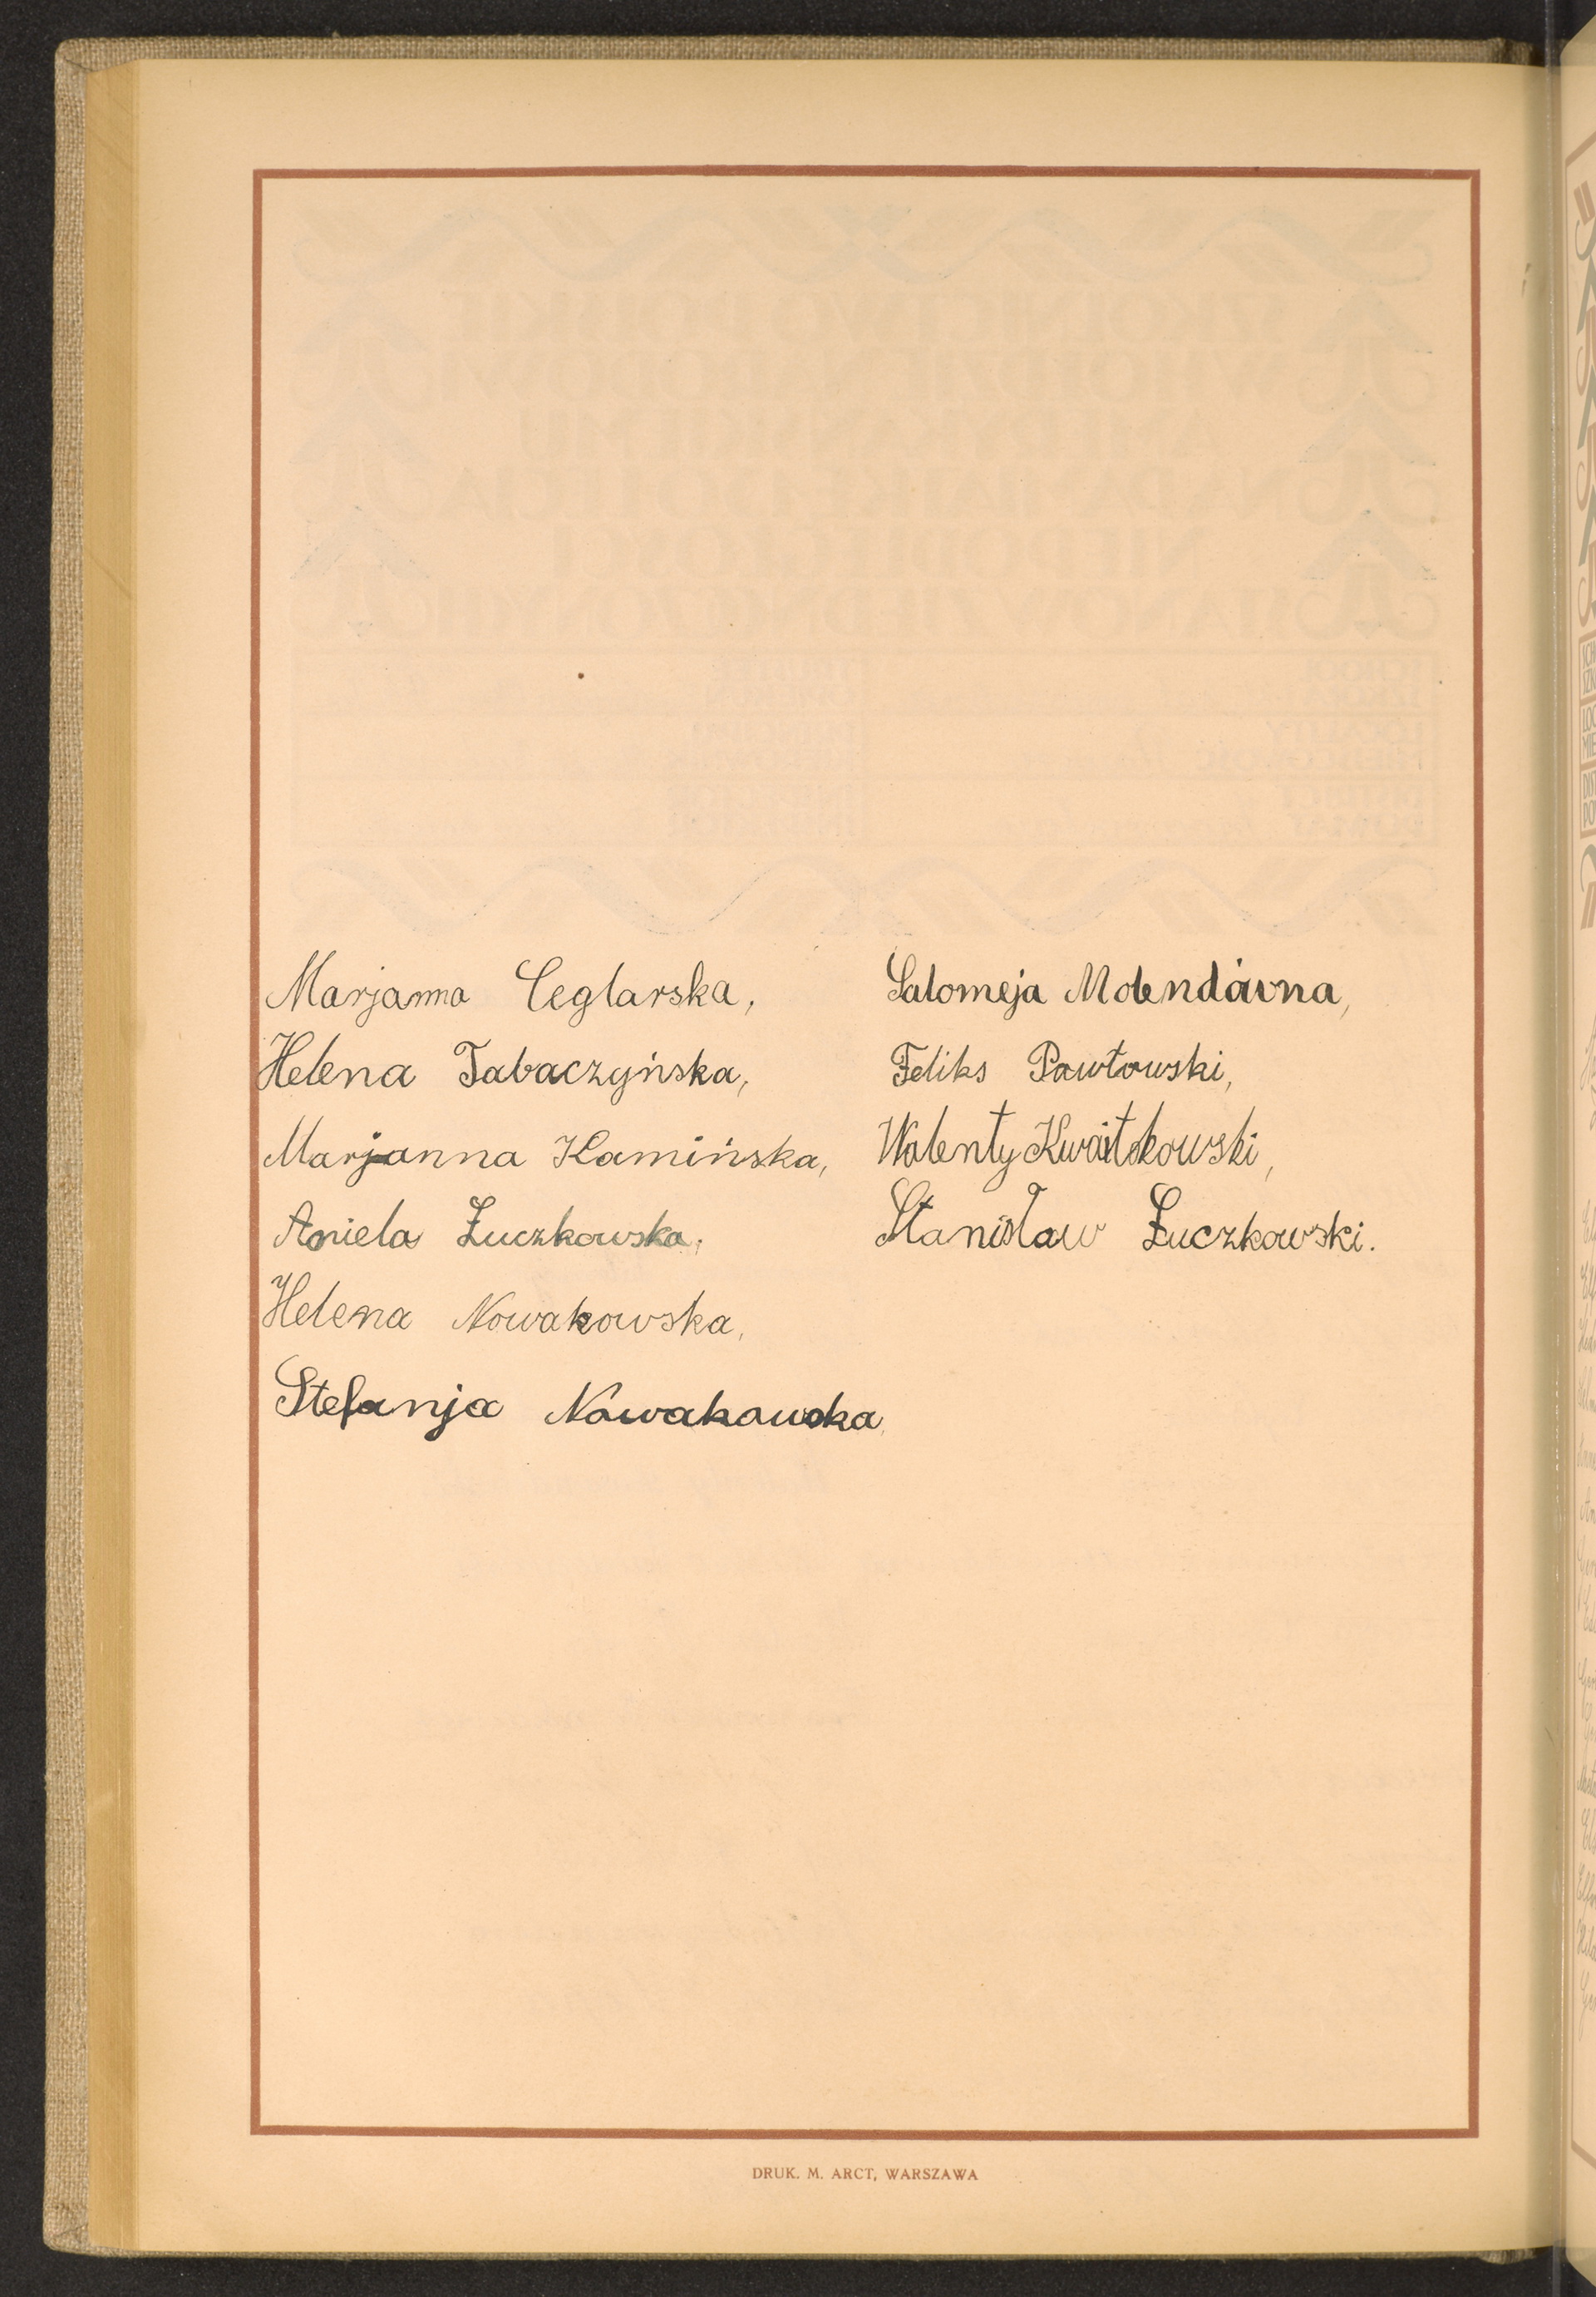 Marjanna Ceglarska,
Helena Tabaczyńska,
Marjanna Kamińska,
Aniela Łuczkowska,
Helena Nowakowska,
Stefanja Nowakowska,
Salomeja Molendówna,
Feliks Pawłowski,
Walenty Kwaitkowski,
Stanisław Łuczkowski.
DRUK. M. ARCT, WARSZAWA